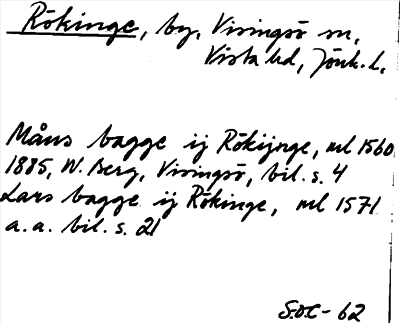 Rökinge, by, Visingsö sn,
Vista hd, Jönk. L.
Måns bagge ij Rökijnge, ml 1560
1885, W. Berg, Visingsö, bil. s. 4
Lars bagge ij Rökinge, ml 1571
a. a. bil. s. 21
S.O.C - 62